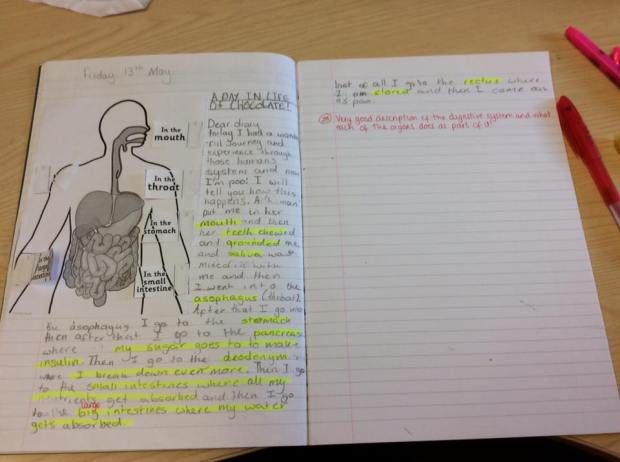 Friday 13th May
A DAY IN LIFE
OF CHOCOLATE!
In the
mouth
In the
throat
In the
stomach
In the
small
intestine
In the
Dear diary
today I had a wonder
ful journey and
experience through
those humans
system and now
I'm poo! I will
tell you how this
happens. A human
put me in her
mouth and then
her teeth chewed
and grounded me
and saliva was
mixed with
me and then
I went into the
asophagus (throat).
After that I go into
the asophagus I go to the stomach
then after that I go to the pancreas
where my sugar goes to to make
insulin. Then I go to the deodenym
where I break down even more. Then I go
to the small intestines where all my
nutrients get absorbed and then I go
to the big large intestines where my water
gets absorbed.
last of all I go to the rectus where
I am stored and then I came out
as poo.
Very good description of the digestive system and what
each of the organs does as part of it!